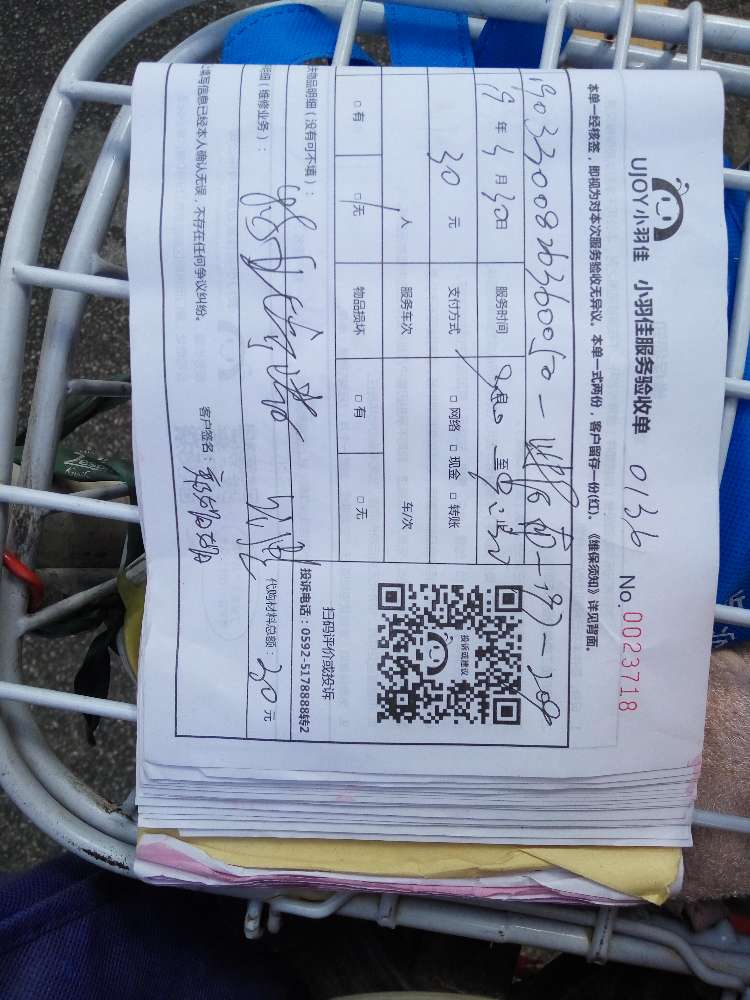 UJOY小羽佳 小羽佳服务验收单 0136 No.0023718
本单一经核签，即视为对本次服务验收无异议。本单一式两份，客户留存一份(红)。《维保须知》详见背面。
19 年 3 月 30日 服务时间 至
30 元 支付方式 □ 网络 □ 现金 □ 转账
人 服务车次 车/次
□ 有 □ 无 物品损坏 □ 有 □ 无
投诉或建议
扫码评价或投诉
投诉电话：0592-5178888转2
物品明细（没有可不填）：
明细（维修业务）： 代购材料总额：30 元
填写信息已经本人确认无误，不存在任何争议纠纷。 客户签名：